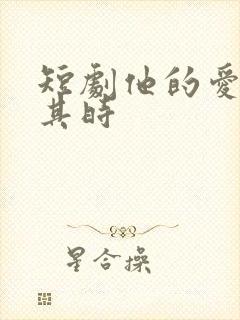 短劇他的愛
其時
星合操